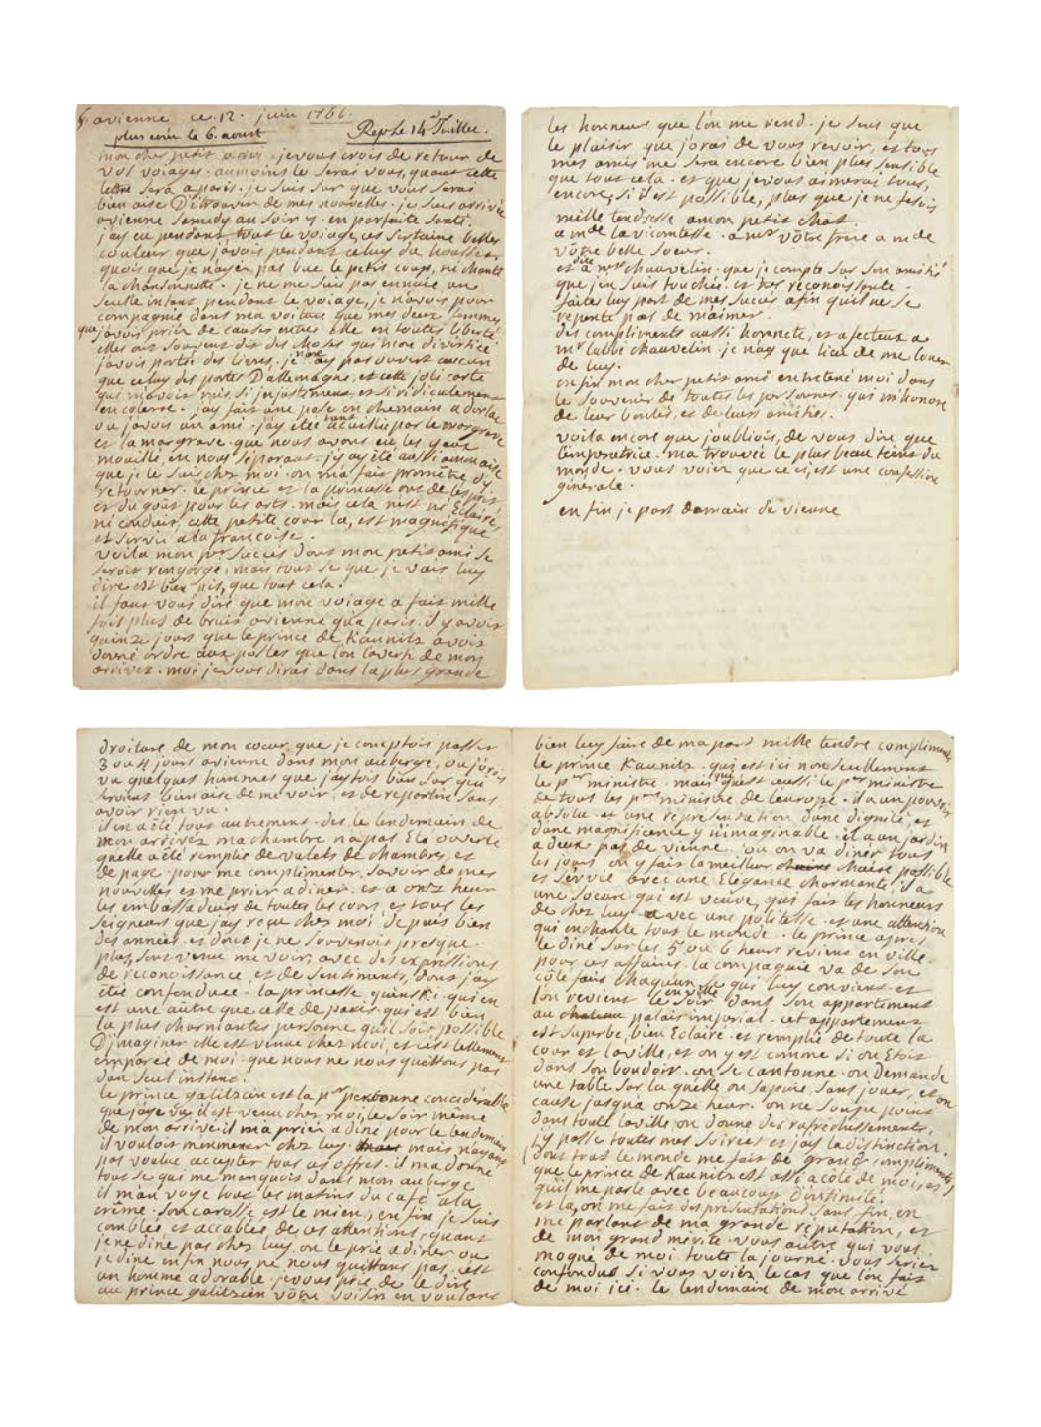 avienne ce. 12. juin 1766.
plus coin le 6. aoust Rep. le 14 Juillec.
mon cher petit ami. je vous crois de retour de
vos voiages. aumoins le serai vous, quant cette
lettre sera aparis. je suis sur que vous serai
bien aise D'etrouvir de mes nouvelles. je suis arrivée
avienne semedy au soir y. en parfaite senté.
jay eu pendant tout le voiage, ces sertaine belles
couleur que javois pendant celuy du housset,
quois que je nayer pas bue le petit coup, ni chanté
la chansonnette. je ne me suis pas ennuié un
seulle instant pendant le voiage, je navois pour
compagnie dans ma voiture que mes deux femmes
que javois priér de causer entres elle en toutes liberté.
elles ont souvent dit des choses qui mon divertie.
javois portés des livres. je nan ay pas ouvert aucun
que celuy des postes D'allemagne, et cette joli carte
qui mavoit mis. si injustement et si ridiculement
en colerre. jay fait une pose en chemain a dorlac
ou javois un ami. jay eté tant acuillie par le margrave
et la margrave. que nous avons eu les yeux
mouillé, en nous séparant. jy ay eté aussi amon aise
que je le suis chez moi. on ma fait promêtre d'y
retourner. le prince et la princesse ont de lesprit
et du gout pour les arts. mais cela n'est ni Eclairé,
ni conduit, cette petite cour la, est magnifique
et servie ala françoise.
voila mon pr. succes dont mon petit ami se
seroit rengorgé, mais tout se que je vais luy
dire est bien pis, que tout cela.
il faut vous dire que mon voiage a fait mille
fois plus de bruit avienne qua paris. il y avoit
quinze jours que le prince de Kaunitz avoit
donné ordre aux postes que lon laverti de mon
arrivez. moi je vous dirai dans la plus grande
droiture de mon coeur que je conptois passer
3 ou 4 jours avienne dans mon auberge, ou jorois
vu quelques hommes que jaytois bien sur qui
seroient bien aise de me voir, et de repartire sans
avoir rien vu.
il en a eté tous autrement. des le lendemain de
mon arrivez machambre napas Eté ouverte
quelle a eté remplie de valets de chambres, et
de page pour me complimenter, savoir de mes
nouvelles et me prier a diner. et a onze heur
les embassadeurs de toutes les cours et tous les
seigneurs que jay reçue chez moi depuis bien
des années. et dont je ne souvenois presque
plus, sont venue me voir, avec des expressions
de reconoissance et de sentiments, dont jay
étée confonduee. la princesse quinski qui en
est une autre que celle de paris, qui est bien
la plus charmantes personne quil soit possible
D'jmaginer elle est venue chez moi, et sest tellement
emparée de moi. que nous ne nous quittons pas
dun seul instant.
le prince galitzain est la pr. personne concidérable
que jaye vu, il est venu chez moi le soir même
de mon arrivé. il ma prier a diné pour le lendemain
il vouloit memmener chez luy. mais nayant
pas voulue accepter tous ces offres. il ma donné
tout se qui me manquois dans mon auberge
il man voye tous les matins du café ala
crême. son carosse est le mien, en fin je suis
comblée et accablée de ces attentions. quant
je ne dine pas chez luy, on le prie a diner ou
je dine enfin nous ne nous quittons pas. cest
un homme adorable. je vous prie de le dire
au prince galitzain vôtre voisin en voulant
bien luy faire de ma part mille tendre compliments
le prince Kaunitz. qui est ici non seullement
le pr. ministre. mais qui est aussi le pr ministre
de tous les pr ministre de l'europe. il a un pouvoir
absolu. et une représentation d'une dignité, et
dune magnificence y n'imaginable. il a un jardin
a deux pas de vienne. ou on va diner tous
les jours on y fait la meilleur chaire possible
et servie avec une Elégance charmante. il a
une soeur qui est veuve, qui fait les honneurs
de chez luy avec une politesse. et une attention
qui enchante tout le monde. le prince apres
le diné sur les 5 ou 6 heurs revient en ville
pour ces affairs. la compagnie va de son
côté faire chaqu'un se qui luy convient. et
lon revient le soir dans son appartement
au palais imperial. cet appartement
est superbe, bien Eclairé. et remplie de toute la
cour et la ville, et on y est comme si on étoit
dans son boudoir. on se cantonne. on demande
une table sur la quelle on sapuie, sans jouer, et on
cause jusqu'a onze heur. on ne soupe point
dans toute la ville on donne des rafréchissements.
j'y passe toutes mes soirées et jay la distinction.
dont tout le monde me fait de grand compliments
que le prince de Kaunitz est assi a côte de moi, et
qu'il me parle avec beaucoup D'intimité.
et la, on me fait des présentations sans fin, en
me parlant de ma grande réputation, et
de mon grand mérite. vous autre qui vous
moqué de moi toute la journé. vous seriez
confondus si vous voiéz le cas que lon fait
de moi ici. le lendemain de mon arrivé
les honneur que lon me rend. je suis que
le plaisir que j'orai de vous revoir, et tous
mes amis me sera encore bien plus sensible
que tout cela. et que je vous aimerai tous,
encore, si il est possible, plus que je ne fesois
mille tendresse amon petit chat
a mde la vicomtesse. a mr vôtre frere a mde
vôtre belle soeur.
et dite a mr chauvelin. que je compte sur son amitié
que jen suis touchée. et tres réconoissante.
faite luy part de mes succés afin quil ne se
repente pas de m'aimer.
des compliments aussi honnete, et afectueux a
mr labbé chauvelin. je nay que lieu de me louer
de luy.
enfin mon cher petit ami entretené moi dans
le souvenir de toutes les personnes qui m'honore
de leur bontés, et de leurs amitiés.
voila encore que j'oubliois, de vous dire que
l'imperatrice. ma trouvée le plus beau teint du
monde. vous voier que ce ci, est une confession
générale.
en fin je part domain de vienne